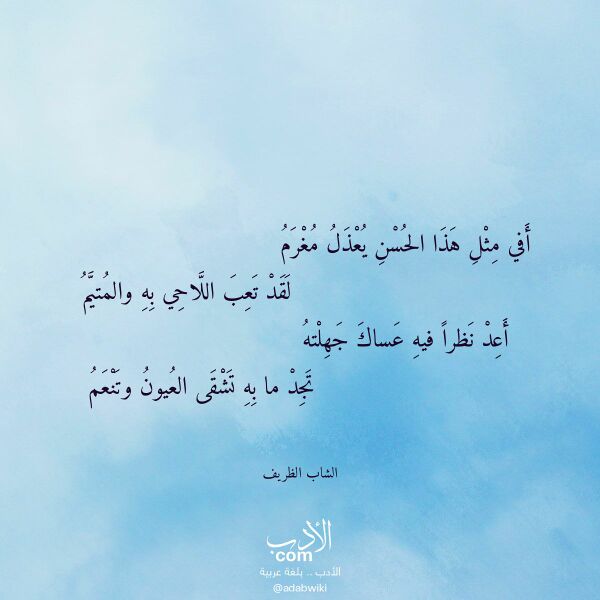 أَفي مِثْلِ هَذَا الحُسْنِ يُعْذَلُ مُغْرَمُ
لَقَدْ تَعِبَ اللَّاحِي بِهِ والمُتيَّمُ
أَعِدْ نَظراً فيهِ عَساكَ جَهِلْتهُ
تَجِدْ ما بِهِ تَشْقَى العُيونُ وتَنْعَمُ
الشاب الظريف
الأدب
com
الأدب .. بلغة عربية
@adabwiki